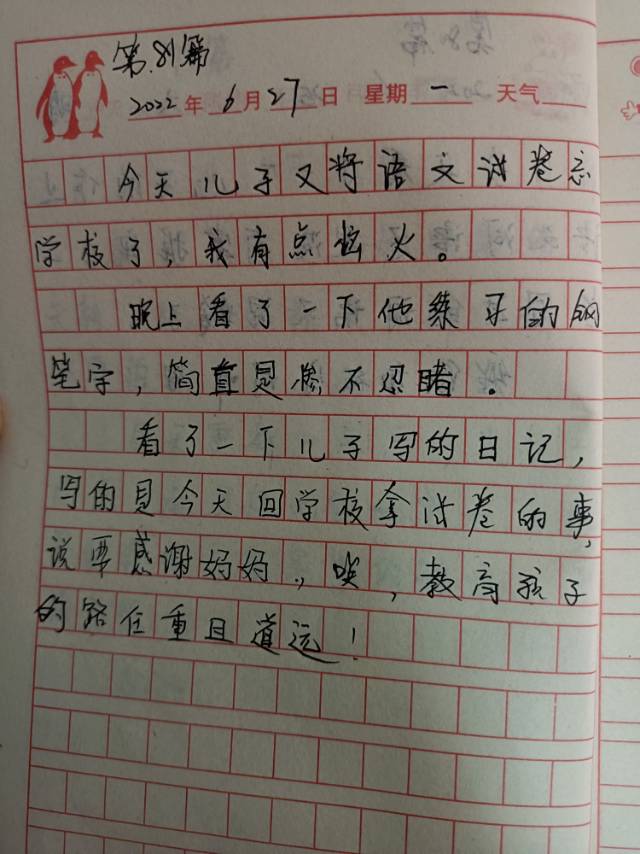 第.81篇
2022年6月27日 星期一 天气
今天儿子又将语文试卷忘
学校了，我有点恼火。
晚上看了一下他练习的钢
笔字，简直是惨不忍睹。
看了一下儿子写的日记，
写的是今天回学校拿试卷的事，
说要感谢妈妈.，唉，教育孩子
的路任重且道远！